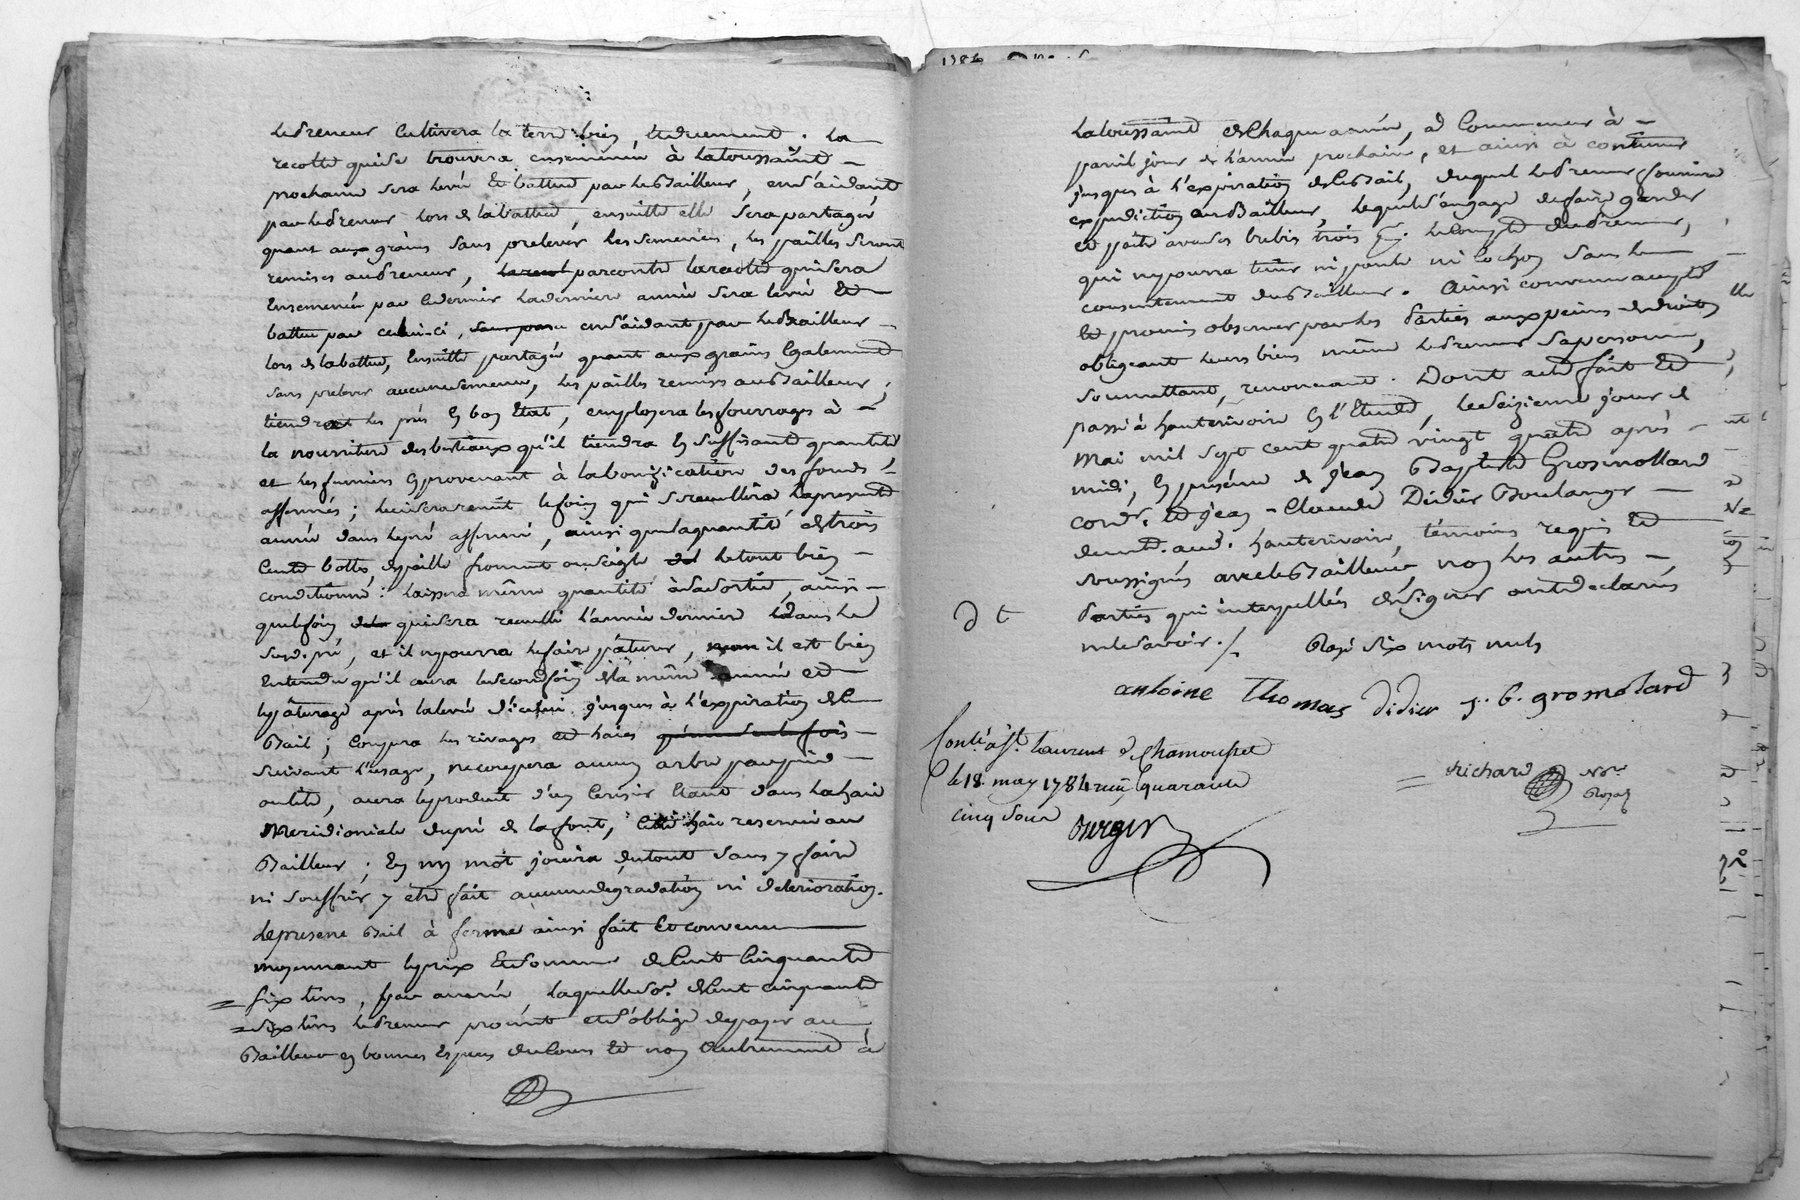 le preneur cultivera la terre bien, et duement. La
recolte qui se trouvera ensemencée à la toussaint
prochaine sera levée et battue par le Bailleur, en s'aidant
par le preneur lors de la battue, ensuitte elle sera partagée
quant aux grains sans prelever les semences, les pailles seront
remises au preneur, par contre la recolte qui sera
Ensemencée par la derniere année sera levée et
battue par celui ci, en s'aidant par le Bailleur
lors de la battue, Ensuitte partagée quant aux grains Egalement
sans prelever aucune semence, les pailles remises au Bailleur,
tiendra les prés en bon Etat, employera les fourrages à
la nourriture des bestiaux qu'il tiendra en suffisante quantité,
et les fumiers en provenant à la bonification des fonds
affermés; le foin qui se recueillira la presente
année dans le pré affermé, ainsi que la quantité de trois
Cents bottes de paille froment ou seigle le tout bien
conditionné: laissera même quantité à sa sortie, ainsi
que le foin qui sera recueilli l'année derniere dans le
susd. pré, et il ne pourra le faire pâturer, il est bien
Entendu qu'il aura le second foin de la même année et
le pâturage après la levée d'icelui jusques à l'expiration de ce
Bail; Coupera les rivages et haies
suivant l'usage, ne coupera aucun arbre par pied
ou tête, aura le produit d'un Cerisier Etant dans la haie
Meridionale du pré de la font, cette haie reservée au
Bailleur; En un mot jouira du tout sans y faire
ni souffrir y etre fait aucune degradation ni deterioration.
le present Bail à ferme ainsi fait et convenu
moyennant le prix et somme de Cent Cinquante
six livres, par année, laquelle so.e de Cent cinquante
six livres le preneur promet et s'oblige de payer au
Bailleur en bonnes Especes du Cours et non autrement à
la toussaint de Chaque année, à Commencer à
pareil jour de l'année prochaine, et ainsi à continuer
jusques à l'expiration de ce Bail, duquel le preneur fournira
expedition au Bailleur, lequel s'engage de faire garder
et paitre avec ses brebis trois le Compte du preneur,
qui ne pourra tenir ni poule ni cochon sans le
consentement du Bailleur. Ainsi convenu accepté
et promis observer par les Parties aux peines de droit
obligeant leurs biens même le preneur sa personne,
soumettant, renonceant. Dont acte fait et
passé à hauterivoire en l'Etude, le seizieme jour de
Mai mil sept cent quatre vingt quatre après
midi, en présence de Jean Baptiste Grosmollard
cord.r et Jean-Claude Didier Boulanger
demt. aud. hauterivoire, témoins requis et
soussignés avec le Bailleur non les autres
Parties qui interpellées de signer ont declarés
ne le savoir./. Rayé six mots nuls
Dt
antoine Thomas Didier J. B. gromolard
Richard No.re Royal
Conlé à St. Laurent de Chamousset
le 18. may 1784 reçu quarante
cinq sous